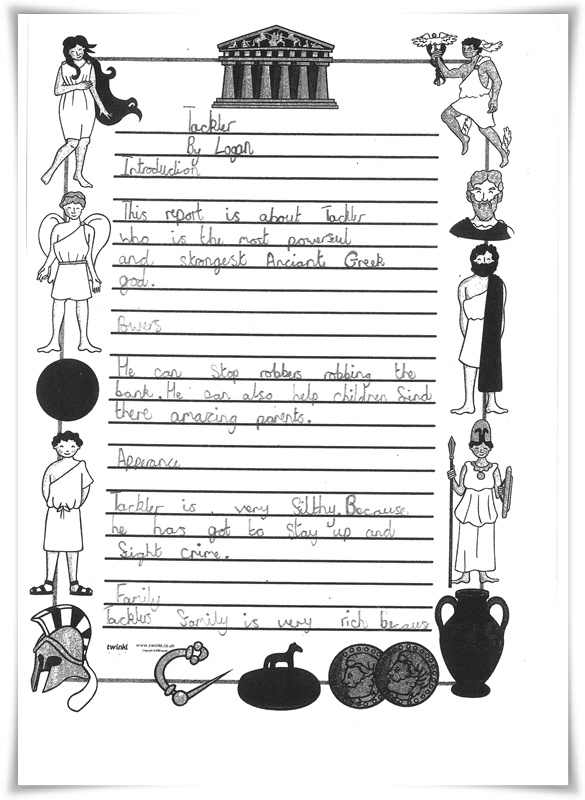 Tackler
By Logan
Introduction
This report is about Tackler
who is the most powerful
and strongest Anciant Greek
god.
Powers
He can stop robbers robbing the
bank. He can also help children find
there amazing parents.
Apperance
Tackler is very filthy. Because
he has got to stay up and
fight crime.
Family
Tacklers family is very rich because
twinkl www.twinkl.co.uk